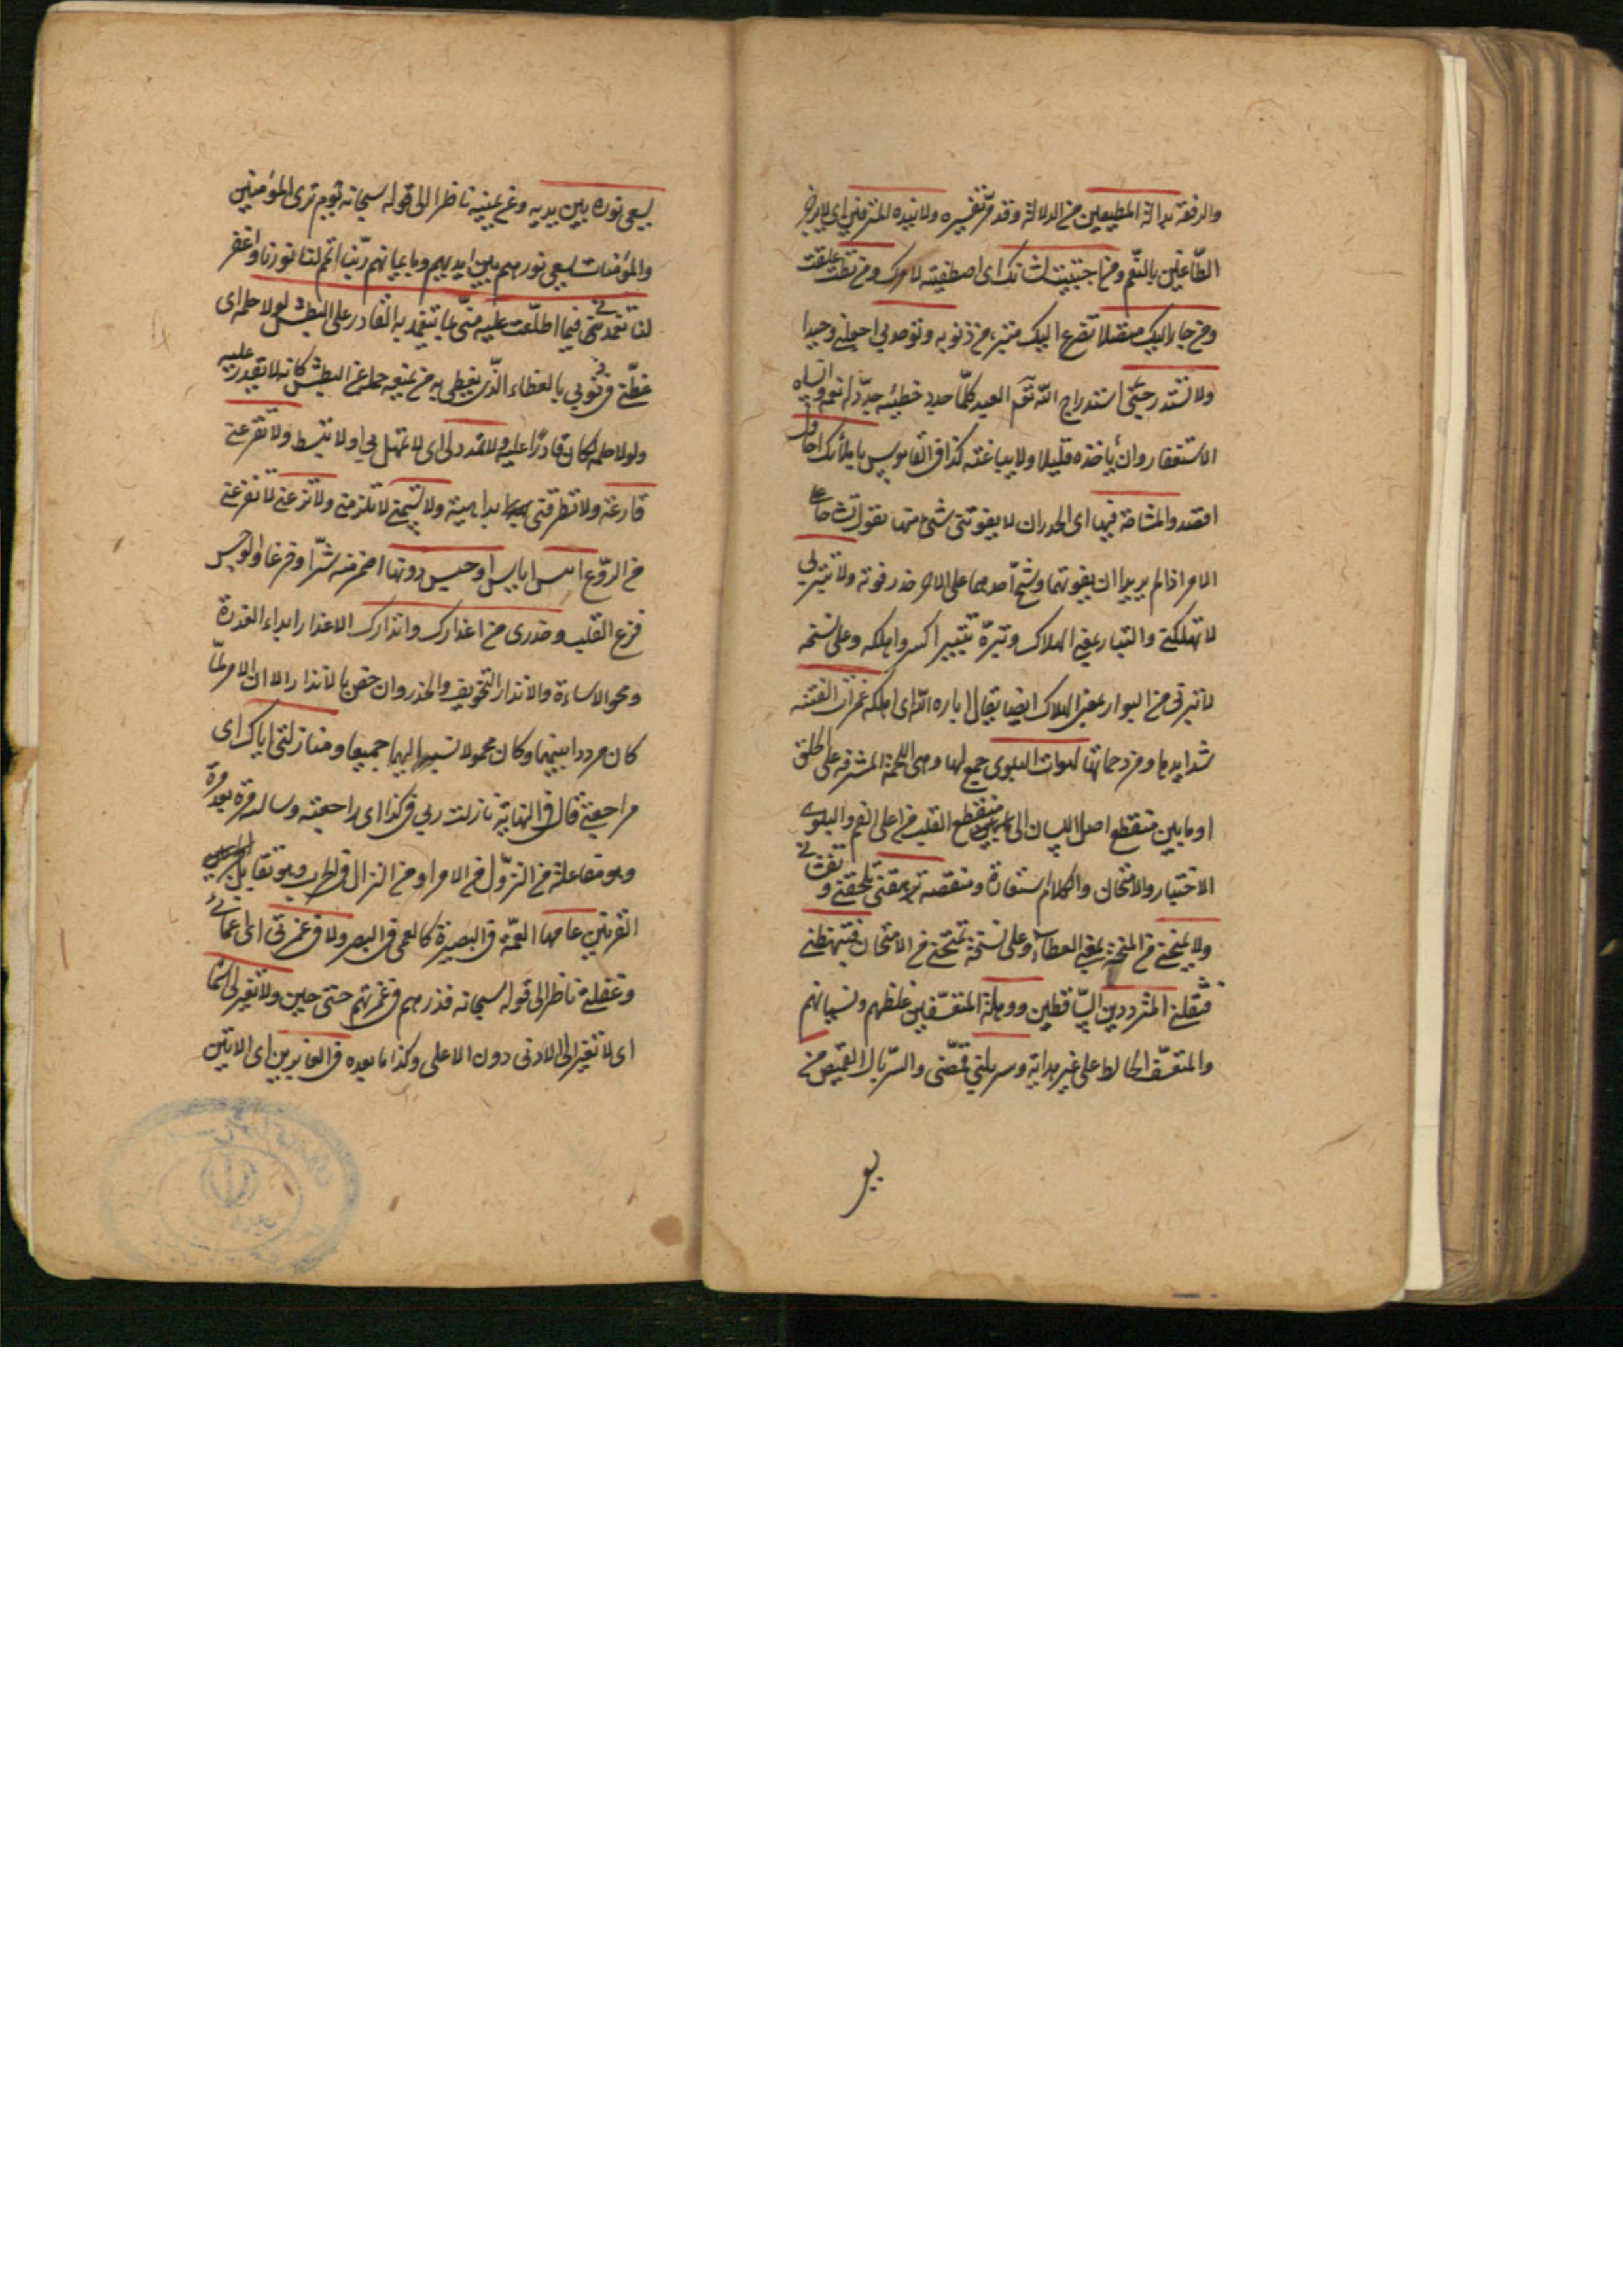 والرفعة بدالة المطيعين من الدلالة وقد مرّ تفسيره ولا تبذه المترفين اى
الطّاغين بالنّعم وممن اجتبيت لشانك اى اصطفيته لامرك ومن
ومن جار اليك متضرع اليك متبرء من ذنوبه وتوحدني اجعلنى وحيدا
ولا تستدرجنى استدراج الله تعالى العبد كلّما جدد خطيئه جدّد له نعمة وانساه
الاستغفار وان يأخذه قليلا قليلا ولا يباغته كذا فى القاموس
افقد والمشاحة فيها اى الجدران لا يفوتنى شئ منها تقول تشاحا على
الامر اذا لم يريدا ان يفوتهما وشح احدهما على الاخر حذر فوته ولا تتبرنى
لا تهلكنى والتبار بمعنى الهلاك وتبرّه تتبيرا كسره واهلكه وعلى نسخة
لا تبرنى من البوار بمعنى الهلاك ايضا يقال اباره الله اى اهلكه غمرات الفتنة
شدايدها ومزدحماتها لهوات البلوى جمع لهاة وهى اللحمة المشرفة على الحلق
او ما بين منقطع اصل اللسان الى منقطع القلب من اعلى الفم والبلوى
الاختبار والامتحان والكلام استعارة ومنقصة ترهقنى تلحقنى و
ولا يمنحنى من المنحة بمعنى العطاء وعلى نسخة تمتحنى من الامتحان فتبهظنى
فتثقلنى المترددين السّاقطين ووهلة المتعسّفين غلطهم ونسيانهم
والمتعسّف الخابط على غير هداية وسربلنى قمّصنى والسّربال القميص من
يسعى
يسعى نوره بين يديه وعن يمينه ناظر الى قوله سبحانه يوم ترى المؤمنين
والمؤمنات يسعى نورهم بين ايديهم وبايمانهم ربّنا اتمم لنا نورنا واغفر
لنا تغمدنى فيما اطلّعت عليه منّى بما يتغمد به القادر على البطش لولا حلمه اى
غطّنى فى ذنوبى بالغطاء الّذى يغطى به من يمنعه حلمه عن البطش كانه لا يقدر عليه
ولولا حلمه لكان قادرًا عليه ولا تمدد لى اى لا تمهل لى ولا تبسط ولا تقرعنى
قارعة ولا تطرقنى بداهية ولا تسمنى لا تلزمنى ولا ترعنى لا تفزعنى
من الروّع ابلس اياس اوجس دونها اضمر منه شرّا وفزعا والوجس
فزع القلب وحذرى من اعذارك وانذارك الاعذار ابداء العذرة
ومحو الاساءة والانذار التخويف والحذر وان خص بالانذار الا ان الامر لمّا
كان مرددا بينهما وكان محمولا نسبه اليهما جميعا ومنازلتى اياك اى
مراجعتى قال فى النهاية نازلت ربى فى كذا اى راجعته وسالته مرة بعد مرة
وهو مفاعلة من النزّول عن الامر او من النزال فى الحرب وهو تقابل
القرنين عامها العمّه فى البصيرة كالعمى فى البصر ولا فى غمرتى اى عمائى
وغفلة ناظر الى قوله سبحانه فذرهم فى غمرتهم حتى حين ولا تغير لى اسما
اى لا تغير الى الادنى دون الاعلى وكذا ما بعده فى الغابرين اى الاتين